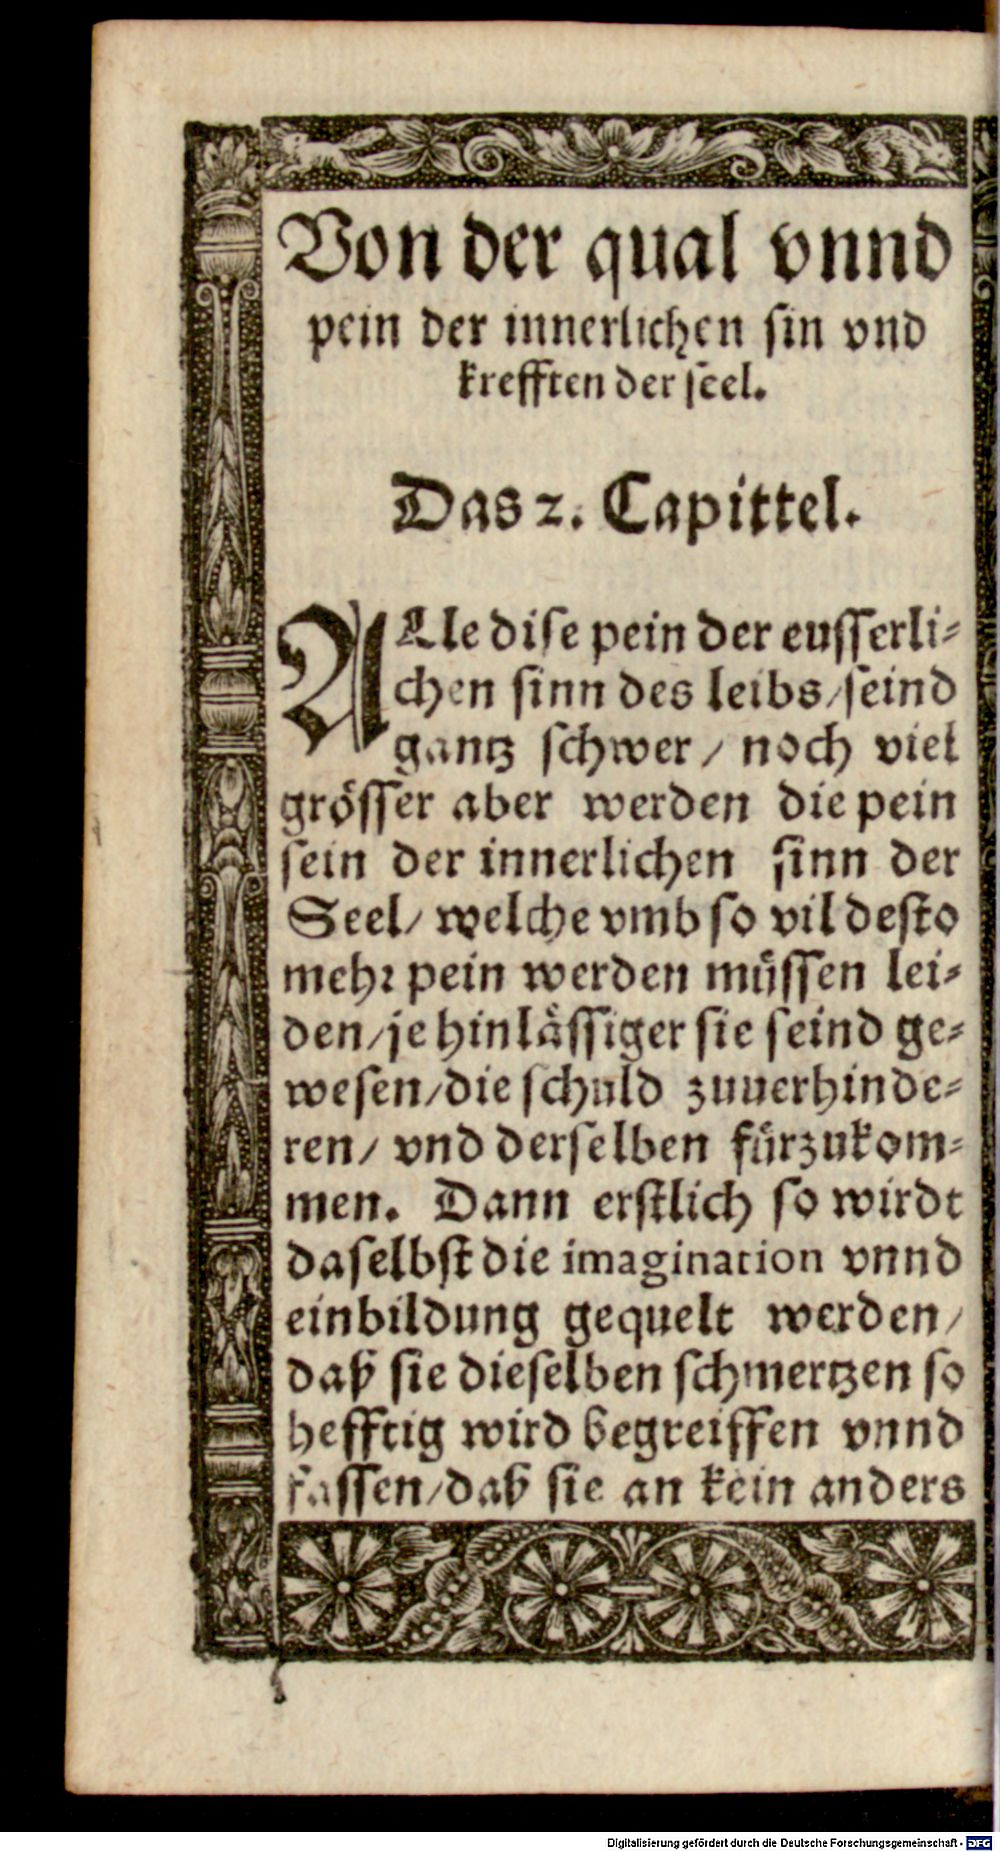 Von der qual vnnd
pein der innerlichen sin vnd
krefften der seel.
Das 2. Capittel.
ALle dise pein der eusserli-
chen sinn des leibs/seind
gantz schwer / noch viel
grösser aber werden die pein
sein der innerlichen sinn der
Seel/ welche vmb so vil desto
mehr pein werden müssen lei-
den/je hinlässiger sie seind ge-
wesen/die schuld zuuerhinde-
ren/ vnd derselben fürzukom-
men. Dann erstlich so wirdt
daselbst die imagination vnnd
einbildung gequelt werden/
daß sie dieselben schmertzen so
hefftig wird begreiffen vnnd
fassen/daß sie an kein anders
Digitalisierung gefördert durch die Deutsche Forschungsgemeinschaft - DFG